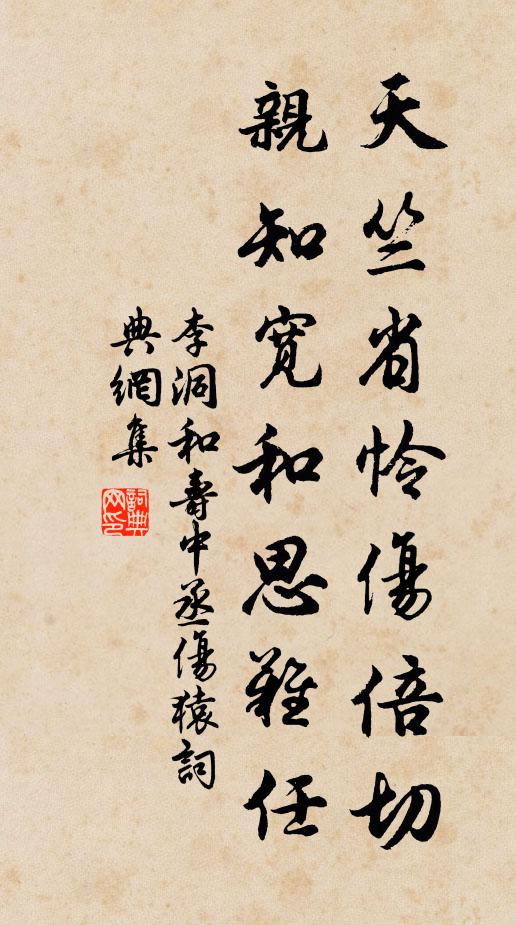 天竺省怜傷倍切
親知寬和思難任
李洞和壽中丞傷猿詞
典網集
詞典網印